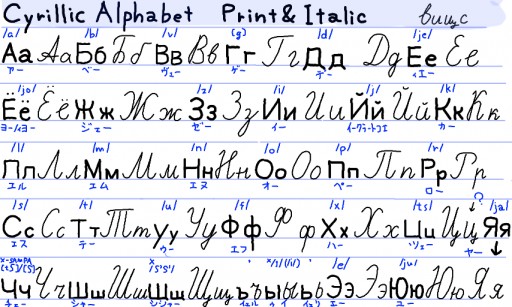 Cyrillic Alphabet Print & Italic вищс
/a/ /b/ /v/ (g) /d/ /je/
Аа Аа Бб Бб Вв Вв Гг Гг Дд Дд Ее Ее
アー ベー ヴェー ゲー デー イェー
/jo/ /z/ /i/ /j/ /k/
Ёё Ёё Жж Жж Зз Зз Ии Ии Йй Йй Кк Кк
ジェー ゼー イー カー
/l/ /m/ /n/ /o/ /p/ /r/
Лл Лл Мм Мм Нн Нн Оо Оо Пп Пп Рр Рр
エル エム エヌ オー ペー
/s/ /t/ /u/ /f/ /x/ /ts/ ? /ja/
Сс Сс Тт Тт Уу Уу Фф Фф Хх Хх Цц Цц Яя
エス テー ウー エフ ハー ツェー ヤー
X-SAMPA /e/ /ju/
Чч Чч Шш Шш Щщ Щщ ъ ъ ы ы ь ь Ээ Ээ Юю Юю Яя
チェー シャー エー ユー